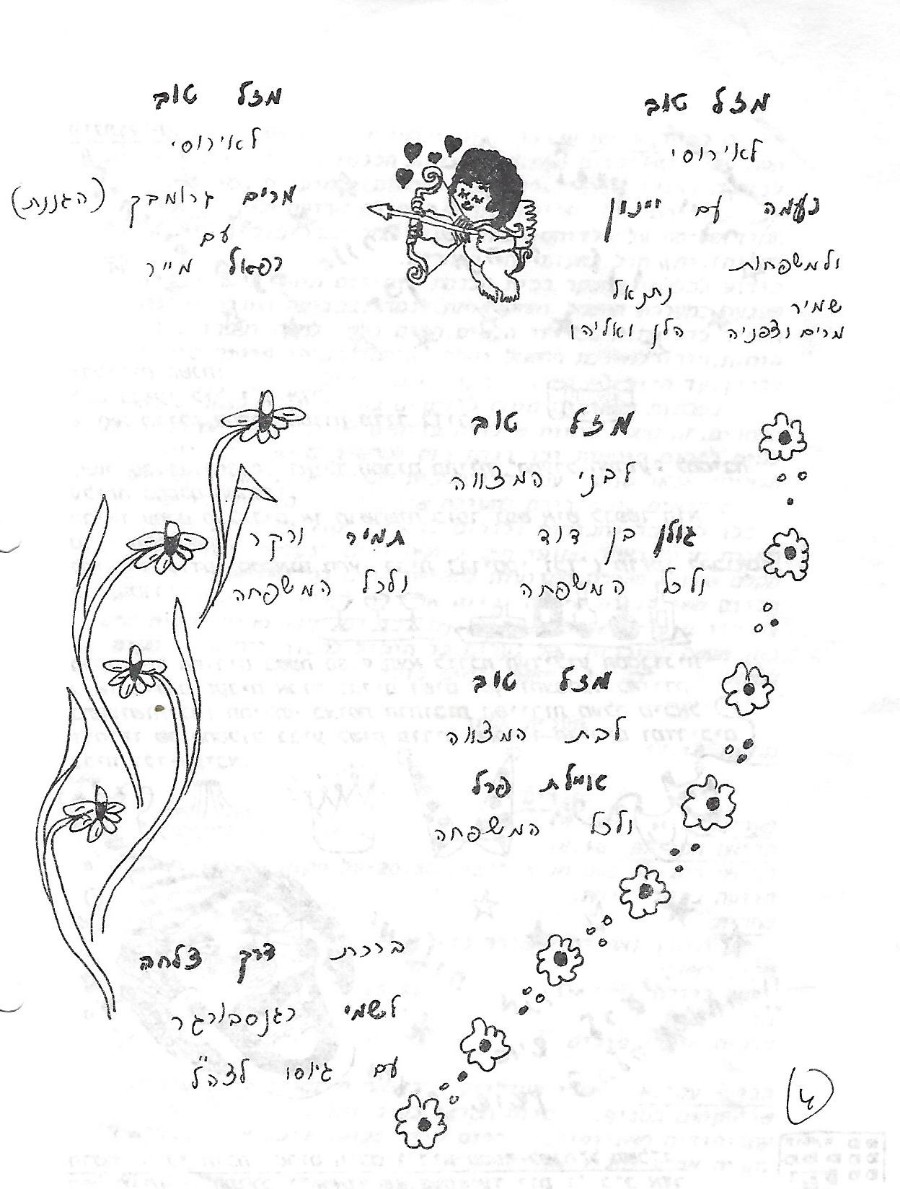 מזל טוב
לאירוסי
נעמה עם יינון
ולמשפחות
שמיר נתנאל
מרים וצפניה הלן ואליהו
מזל טוב
לאירוסי
מרים גרומבק (הגננת)
עם
רפאל מייר
מזל טוב
לבני המצווה
גולן בן דוד
ולכל המשפחה
תמיר ורקר
ולכל המשפחה
מזל טוב
לבת המצווה
אילת פרל
ולכל המשפחה
ברכת דרך צלחה
לשמי רגנסבורגר
עם גיוסו לצה"ל
4